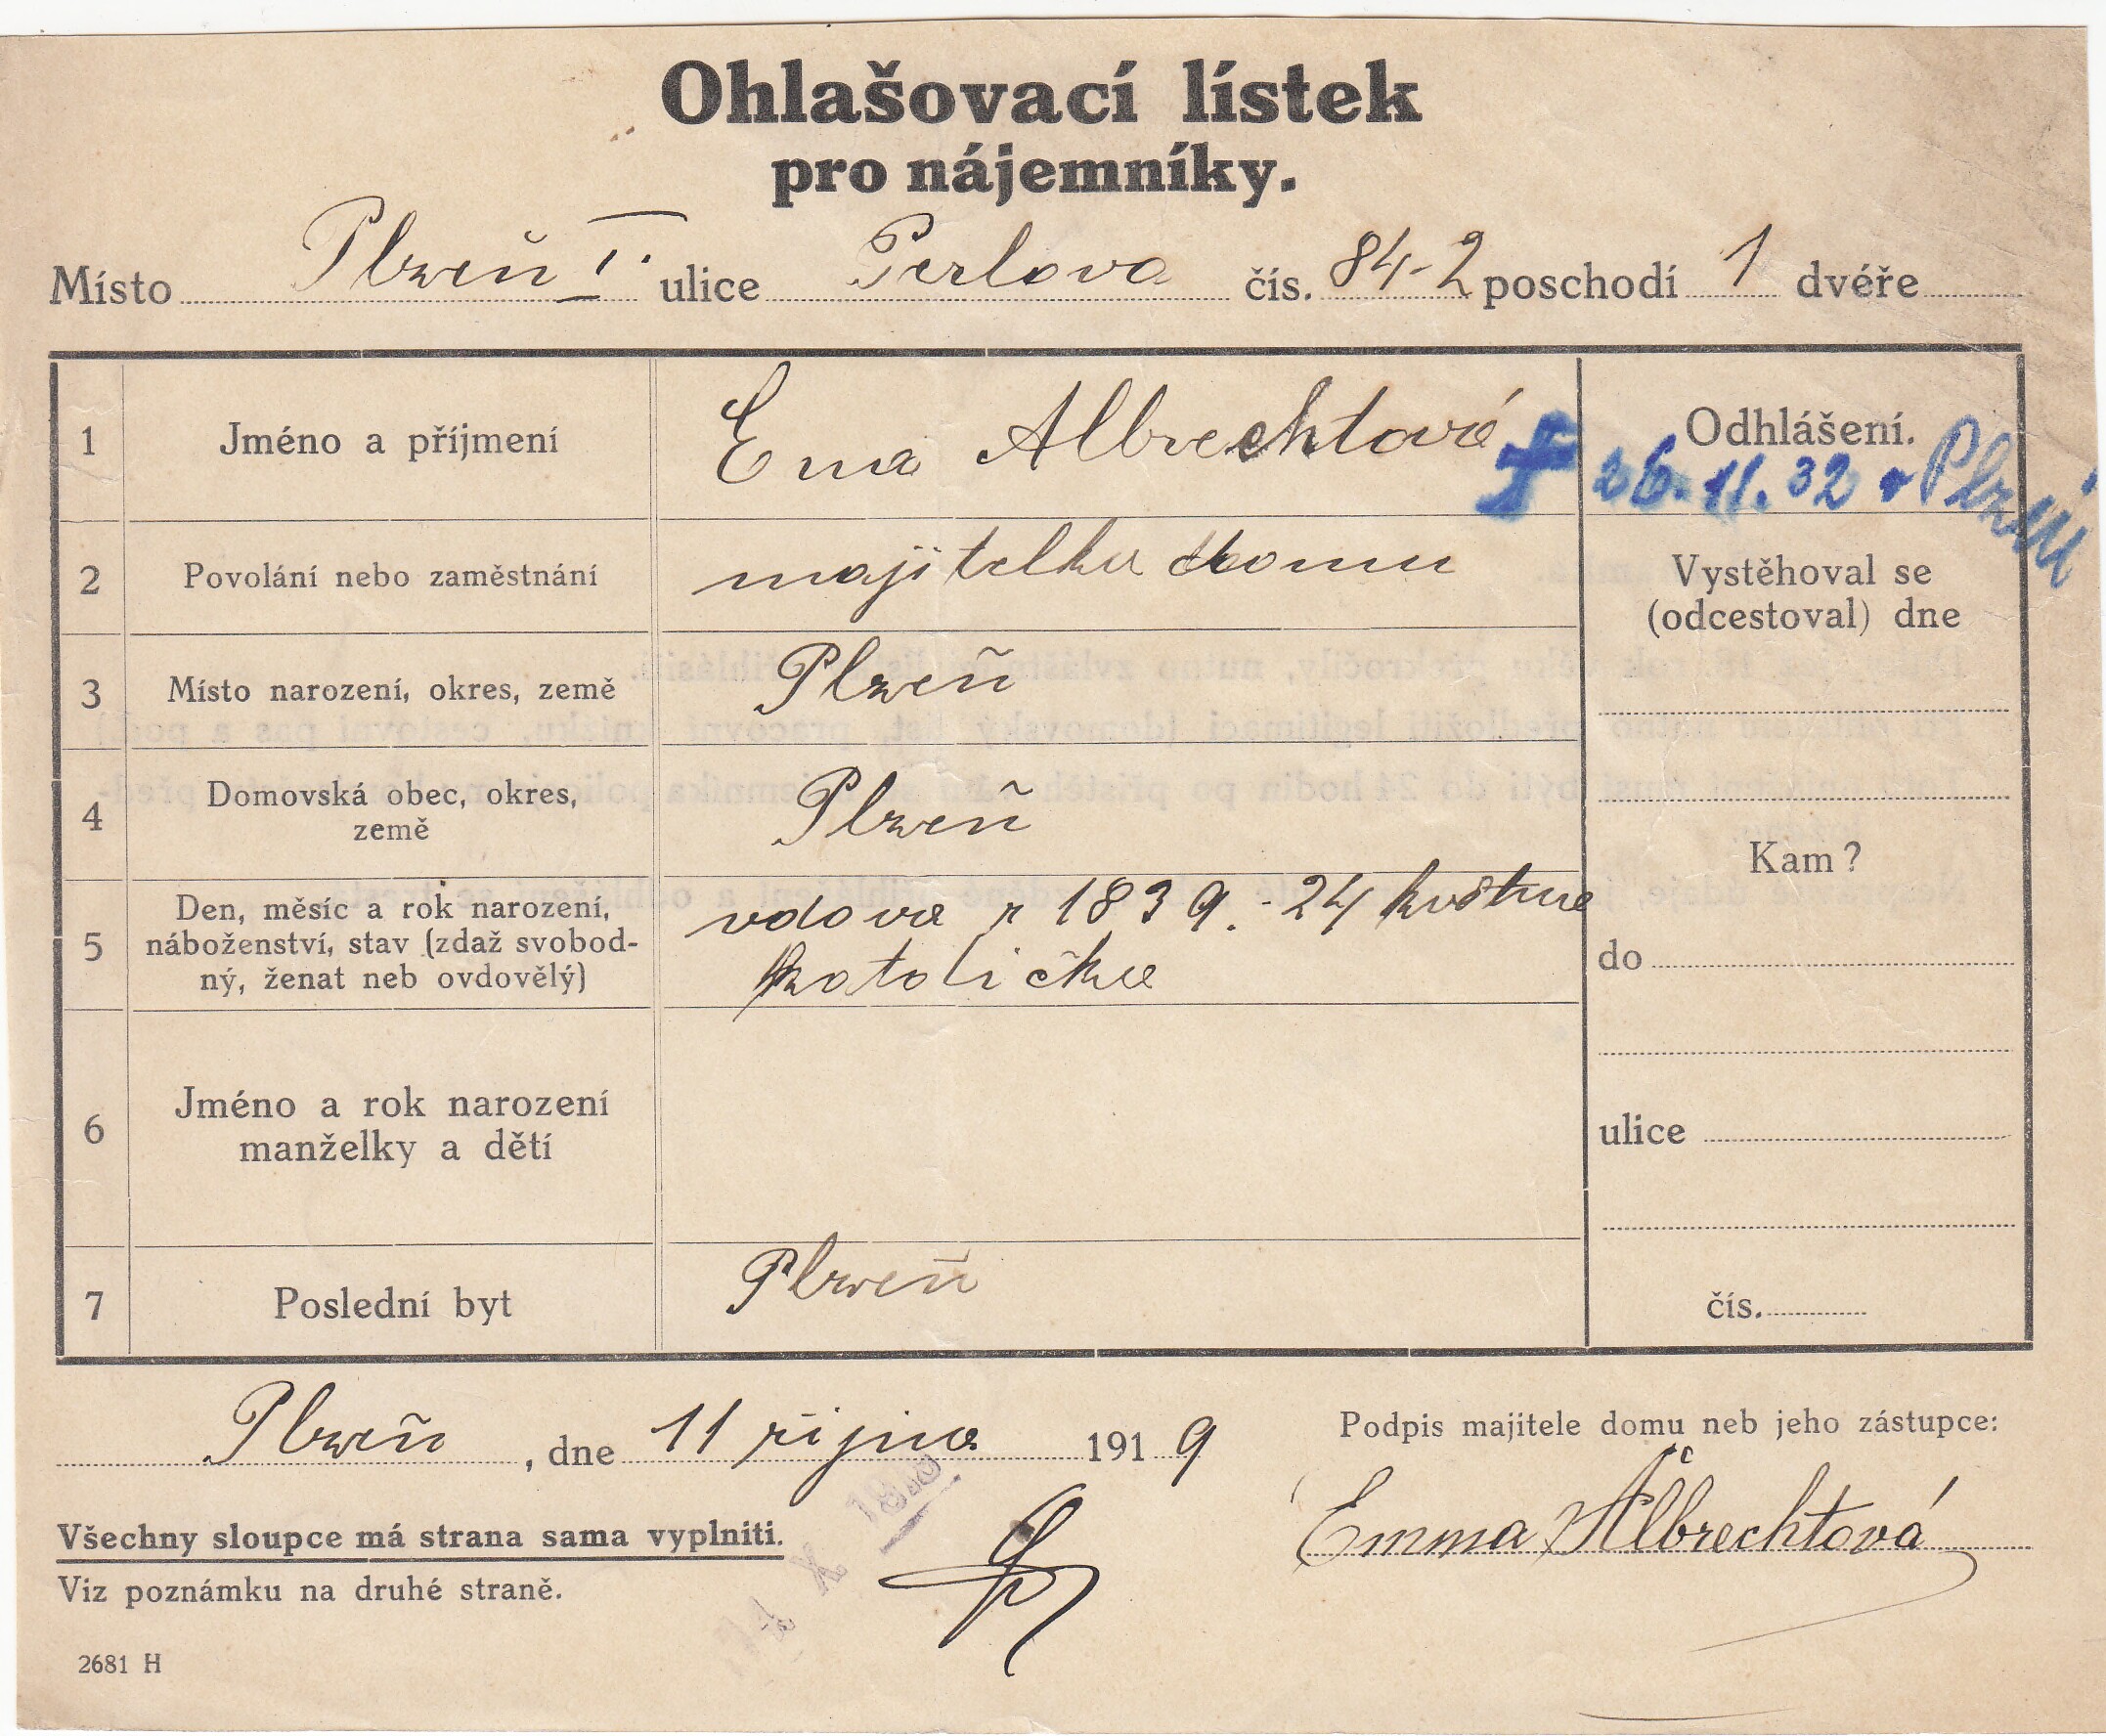 Ohlašovací lístek
pro nájemníky.
Místo Plzeň I. ulice Perlova čís. 84-2 poschodí 1 dvéře
1 Jméno a příjmení Ema Albrechtová Odhlášení.
† 26. 11. 32 v Plzni
2 Povolání nebo zaměstnání majitelka domu Vystěhoval se
(odcestoval) dne
3 Místo narození, okres, země Plzeň
4 Domovská obec, okres,
země Plzeň
Kam?
5 Den, měsíc a rok narození,
náboženství, stav (zdaž svobod-
ný, ženat neb ovdovělý) vdova r 1839. - 24 května
katolička
do
6 Jméno a rok narození
manželky a dětí
ulice
7 Poslední byt Plzeň čís.
Plzeň, dne 11 října 1919 Podpis majitele domu neb jeho zástupce:
Emma Albrechtová
Všechny sloupce má strana sama vyplniti.
Viz poznámku na druhé straně.
2681 H